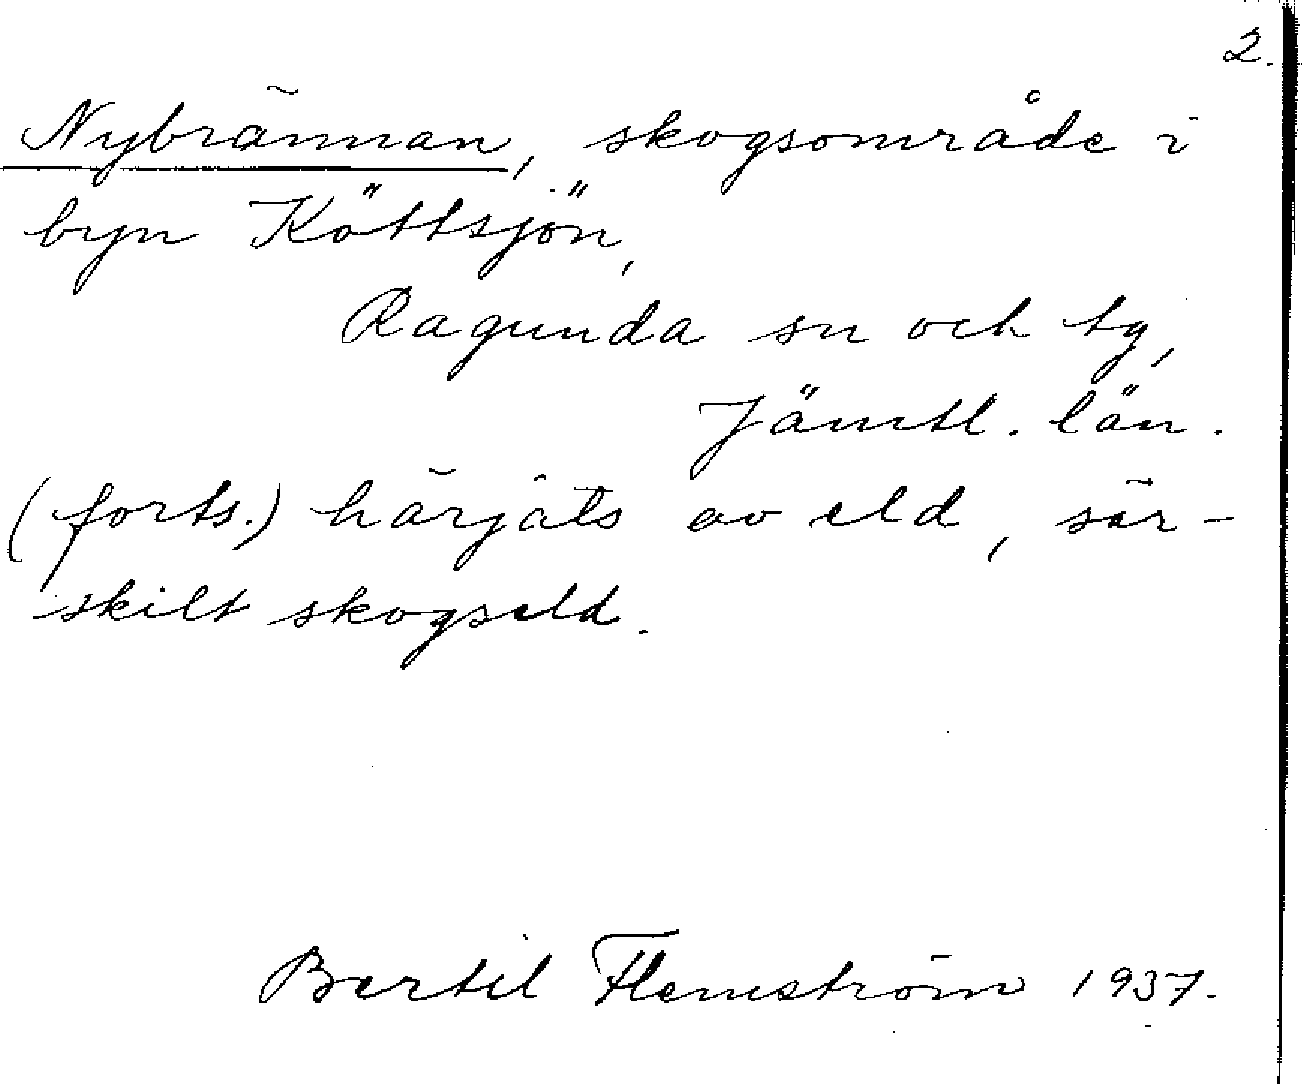 2.
Nybrännan, skogsområde i
byn Köttsjön,
Ragunda sn och tg,
Jämtl. län.
(forts.) härjats av eld, sär-
skilt skogseld.
Bertil Flemström 1937.